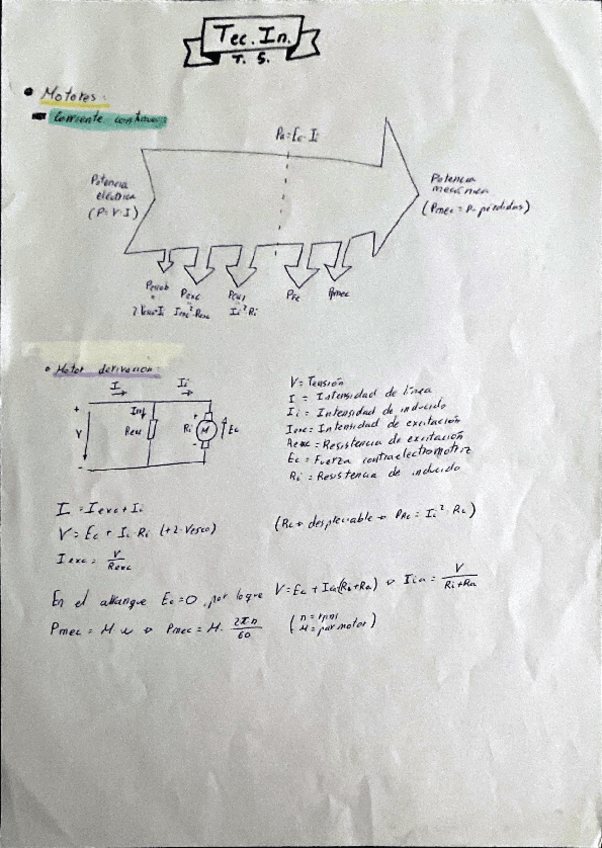 Tec. In.
T. S.
• Motores:
Corriente continua:
Pa = Ec · Ii
Potencia eléctrica (P = V · I)
Potencia mecánica (Pmec = P - pérdidas)
Pescob
Pexc
Pcu1
PFe
Pmec
2 Vesco · I
Iexc² · Rexc
Ii² · Ri
• Motor derivación:
I
Ii
+
V
-
Rexc
Ri
+
M
-
Ec
V = Tensión
I = Intensidad de línea
Ii = Intensidad de inducido
Iexc = Intensidad de excitación
Rexc = Resistencia de excitación
Ec = Fuerza contraelectromotriz
Ri = Resistencia de inducido
I = Iexc + Ii
V = Ec + Ii · Ri (+ 2 · Vesco)
Iexc = V / Rexc
(Rc → despreciable → PRc = Ii² · Rc)
En el arranque Ec = 0, por lo que V = Ec + Iia(Ri + Ra) → Iia = V / Ri + Ra
Pmec = M · ω → Pmec = M · 2πn / 60
(n = rpm
M = par motor)